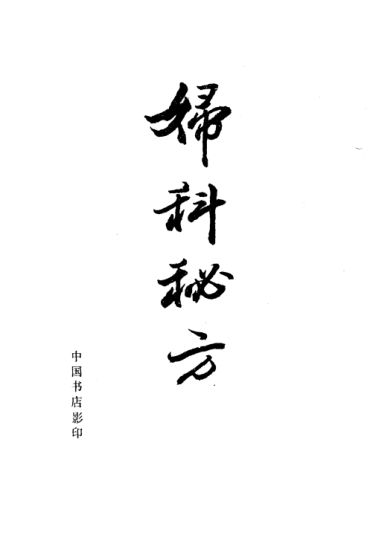 婦科秘方
中国书店影印